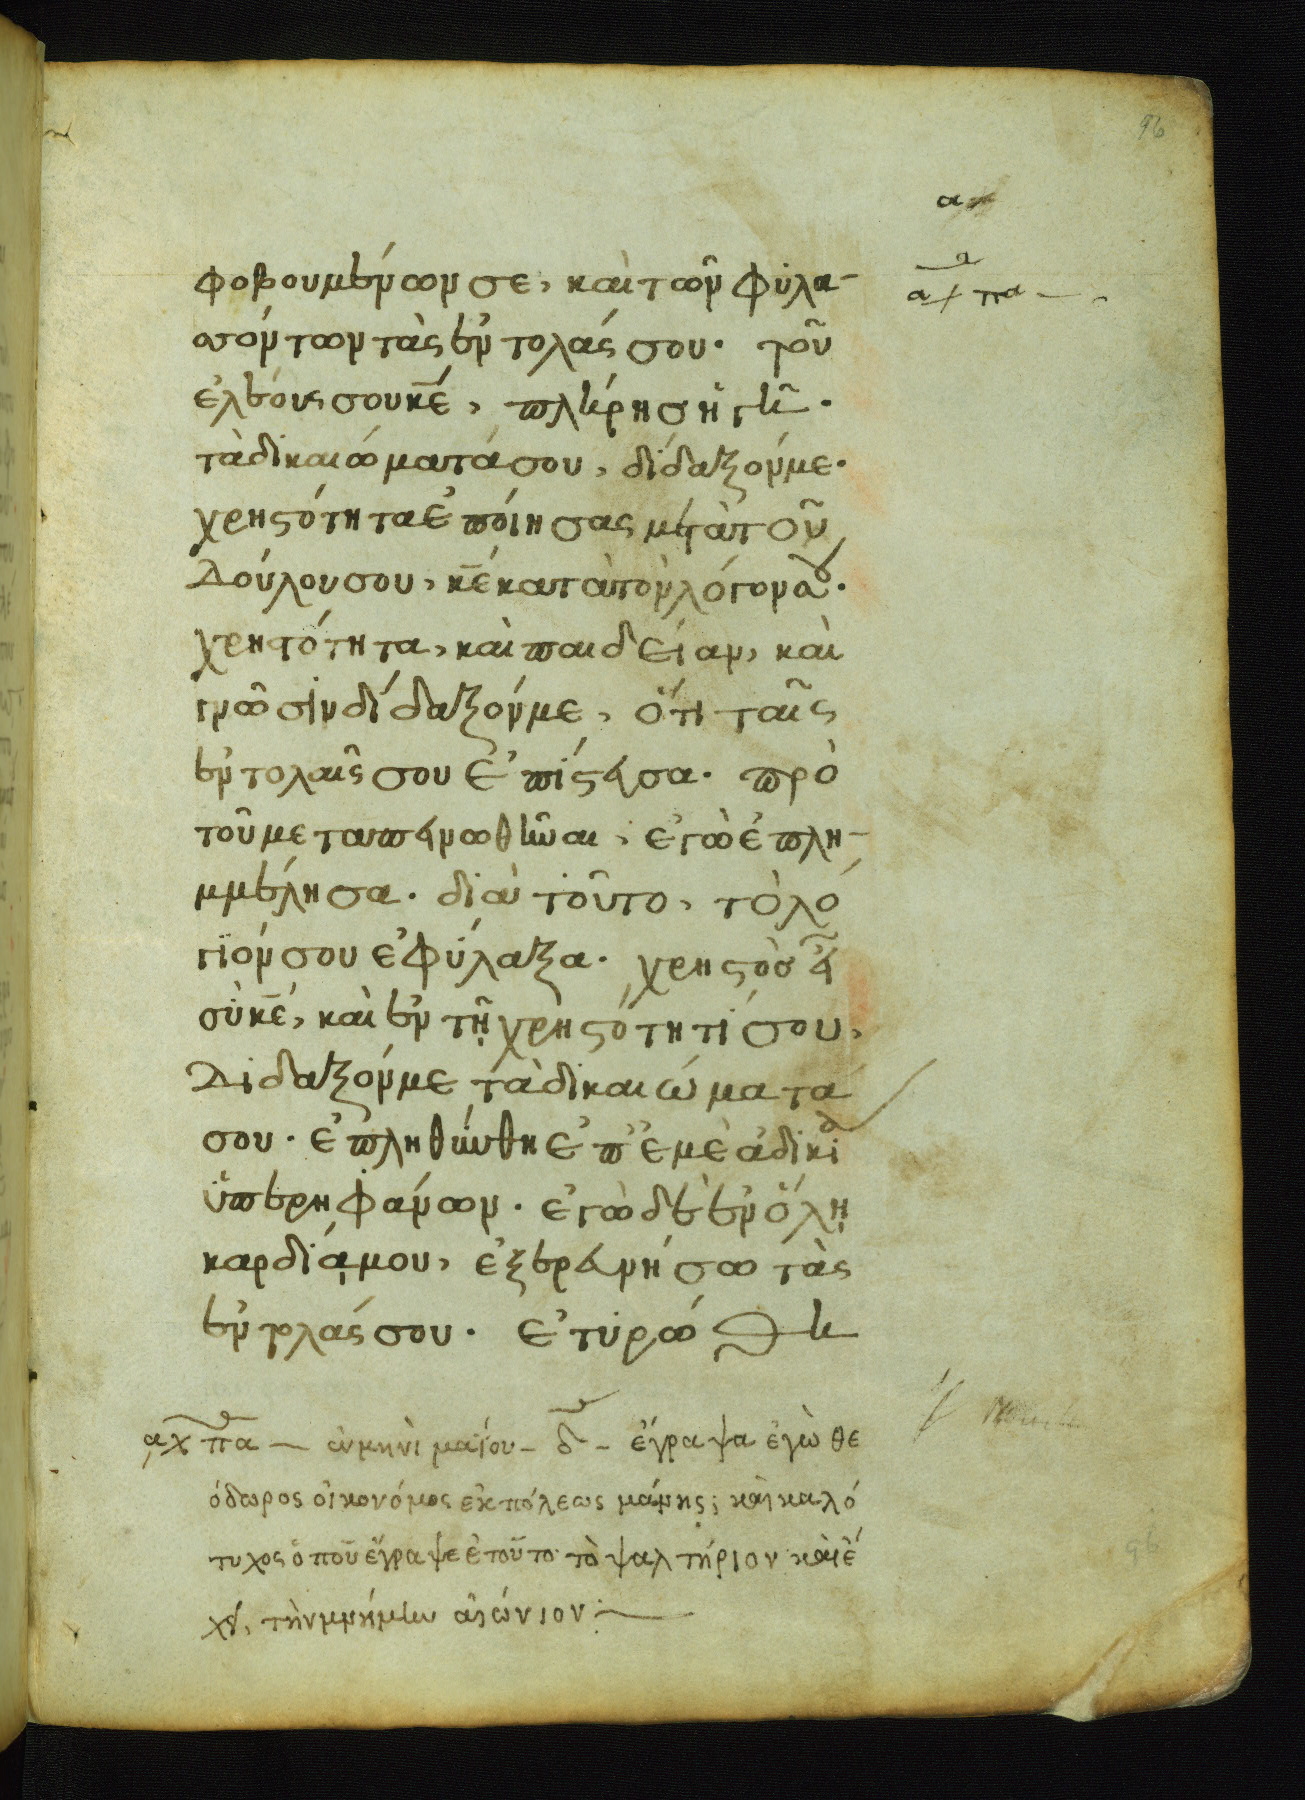 96
α
φοβουμένων σε, καὶ τῶν φυλα-
σσόντων τὰς ἐντολάς σου. τοῦ
ἐλέους σου κε̅, πλήρης ἡ γῆ.
τὰ δικαιώματά σου, δίδαξόν με.
χρηστότητα ἐποίησας μετὰ τοῦ
δούλου σου, κε̅ κατὰ τὸν λόγον σου.
χρηστότητα, καὶ παιδείαν, καὶ
γνῶσιν δίδαξόν με, ὅτι ταῖς
ἐντολαῖς σου ἐπίστευσα. πρὸ
τοῦ με ταπεινωθῆναι, ἐγὼ ἐπλη-
μμέλησα. διὰ τοῦτο, τὸ λό
γιόν σου ἐφύλαξα. χρηστὸς εἶ
σὺ κε̅, καὶ ἐν τῇ χρηστότητί σου,
δίδαξόν με τὰ δικαιώματά
σου. ἐπληθύνθη ἐπ' ἐμὲ ἀδικία
ὑπερηφάνων. ἐγὼ δὲ ἐν ὅλῃ
καρδίᾳ μου, ἐξερευνήσω τὰς
ἐντολάς σου. ἐτυρώθη
͵αχπα — ἐν μηνὶ μαΐου - δ - ἔγραψα ἐγὼ θε
όδωρος οἰκονόμος ἐκ πόλεως μάνης; καὶ καλό
τυχος ὁποῦ ἔγραψε ἐτοῦτο τὸ ψαλτήριον καὶ ἐ
χει, τὴν μνήμην αἰώνιον
96